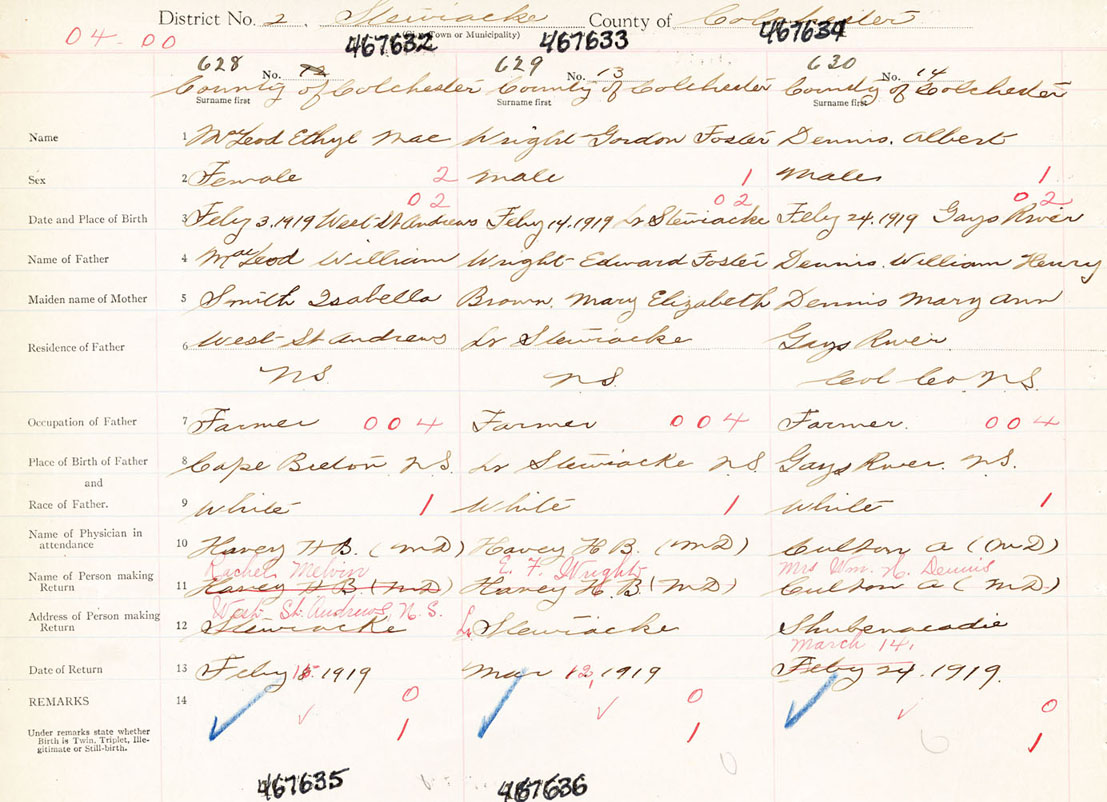 District No. 2, Stewiacke County of Colchester
(City, Town or Municipality)
04-00 467632 467633 467634
628 No. 12 629 No. 13 630 No. 14
County of Colchester County of Colchester County of Colchester
Surname first Surname first Surname first
Name 1 McLeod Ethyl Mae Wright Gordon Foster Dennis. Albert
Sex 2 Female 2 Male 1 Male 1
02 02 02
Date and Place of Birth 3 Feby 3. 1919 West St Andrews Feby 14. 1919 Lr Stewiacke Feby 24. 1919 Gays River
Name of Father 4 MacLeod William Wright Edward Foster Dennis. William Henry
Maiden name of Mother 5 Smith Isabella Brown. Mary Elizabeth Dennis Mary Ann
Residence of Father 6 West St Andrews Lr Stewiacke Gays River
N.S. N.S. Col Co. N.S.
Occupation of Father 7 Farmer 004 Farmer 004 Farmer. 004
Place of Birth of Father 8 Cape Breton N.S. Lr Stewiacke N S Gays River. N.S.
and
Race of Father. 9 White 1 White 1 White 1
Name of Physician in
attendance 10 Havey H B. (MD) Havey H B. (MD) Culton A (MD)
Rachel Melvin E. F. Wright Mrs Wm. H. Dennis
Name of Person making
Return 11 Havey H B (MD) Havey H. B. (MD) Culton A (MD)
West St. Andrews, N.S.
Address of Person making
Return 12 Stewiacke Lr Stewiacke Shubenacadie
March 14,
Date of Return 13 Feby 15. 1919 Mar 13, 1919 Feby 24. 1919.
REMARKS 14 0 0 0
Under remarks state whether
Birth is Twin, Triplet, Ille-
gitimate or Still-birth. 1 1 1
467635 467636